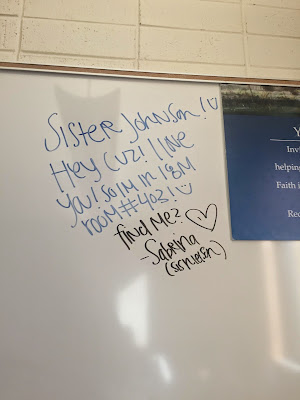 Sister Johnson! U
Hey Cuz! I love
you! So I'm in 18M
room #403! U
find me? ♡
-Sabrina
(Sis Nielson)
Y
Invi
helping
Faith i
Rec